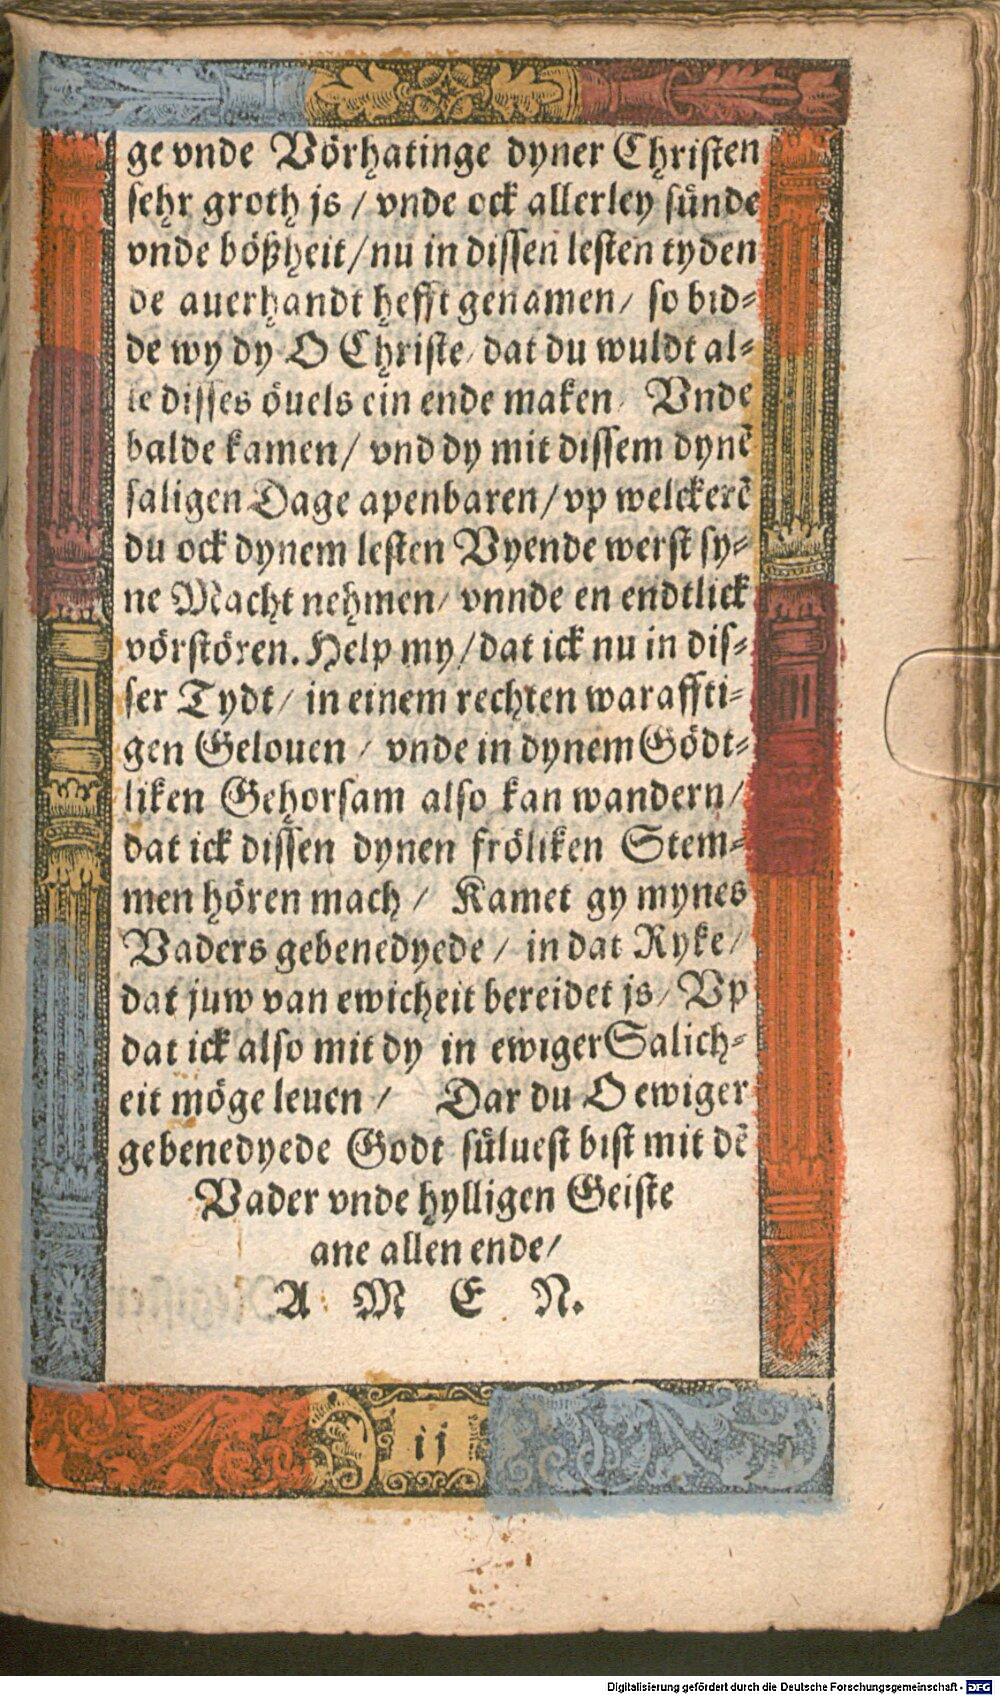 ge vnde Vörhatinge dyner Christen
sehr groth js / vnde ock allerley sünde
vnde bößheit / nu in dissen lesten tyden
de auerhandt hefft genamen / so bid⸗
de wy dy O Christe / dat du wuldt al⸗
le disses öuels ein ende maken / Vnde
balde kamen / vnd dy mit dissem dynē
saligen Dage apenbaren / vp welckerē
du ock dynem lesten Vyende werst sy⸗
ne Macht nehmen / vnnde en endtlick
vörstören. Help my / dat ick nu in dis⸗
ser Tydt / in einem rechten waraffti⸗
gen Gelouen / vnde in dynem Gödt⸗
liken Gehorsam also kan wandern /
dat ick dissen dynen fröliken Stem⸗
men hören mach / Kamet gy mynes
Vaders gebenedyede / in dat Ryke /
dat juw van ewicheit bereidet js / Vp
dat ick also mit dy in ewiger Salich⸗
eit möge leuen / Dar du O ewiger
gebenedyede Godt süluest bist mit dē
Vader vnde hylligen Geiste
ane allen ende /
A M E N.
ij
Digitalisierung gefördert durch die Deutsche Forschungsgemeinschaft - DFG